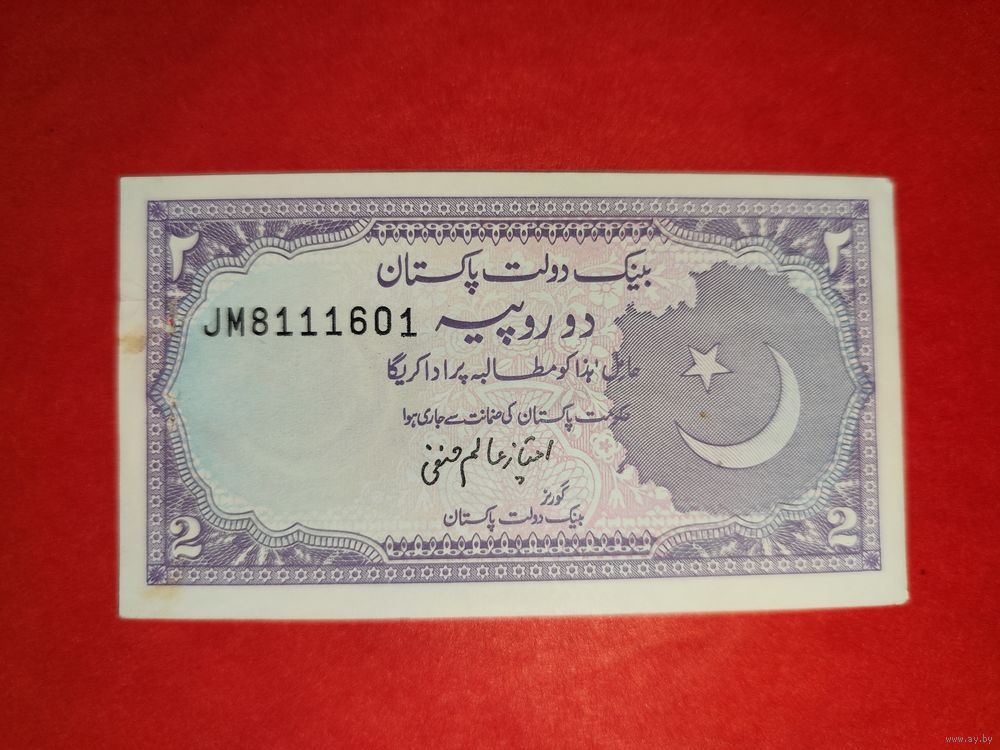 ۲ ۲
بینک دولت پاکستان
JM8111601
دو روپیہ
حامل ہٰذا کو مطالبہ پر ادا کریگا
حکومت پاکستان کی ضمانت سے جاری ہوا
امتیاز عالم حنفی
گورنر
بینک دولت پاکستان
2 2
www.ay.by